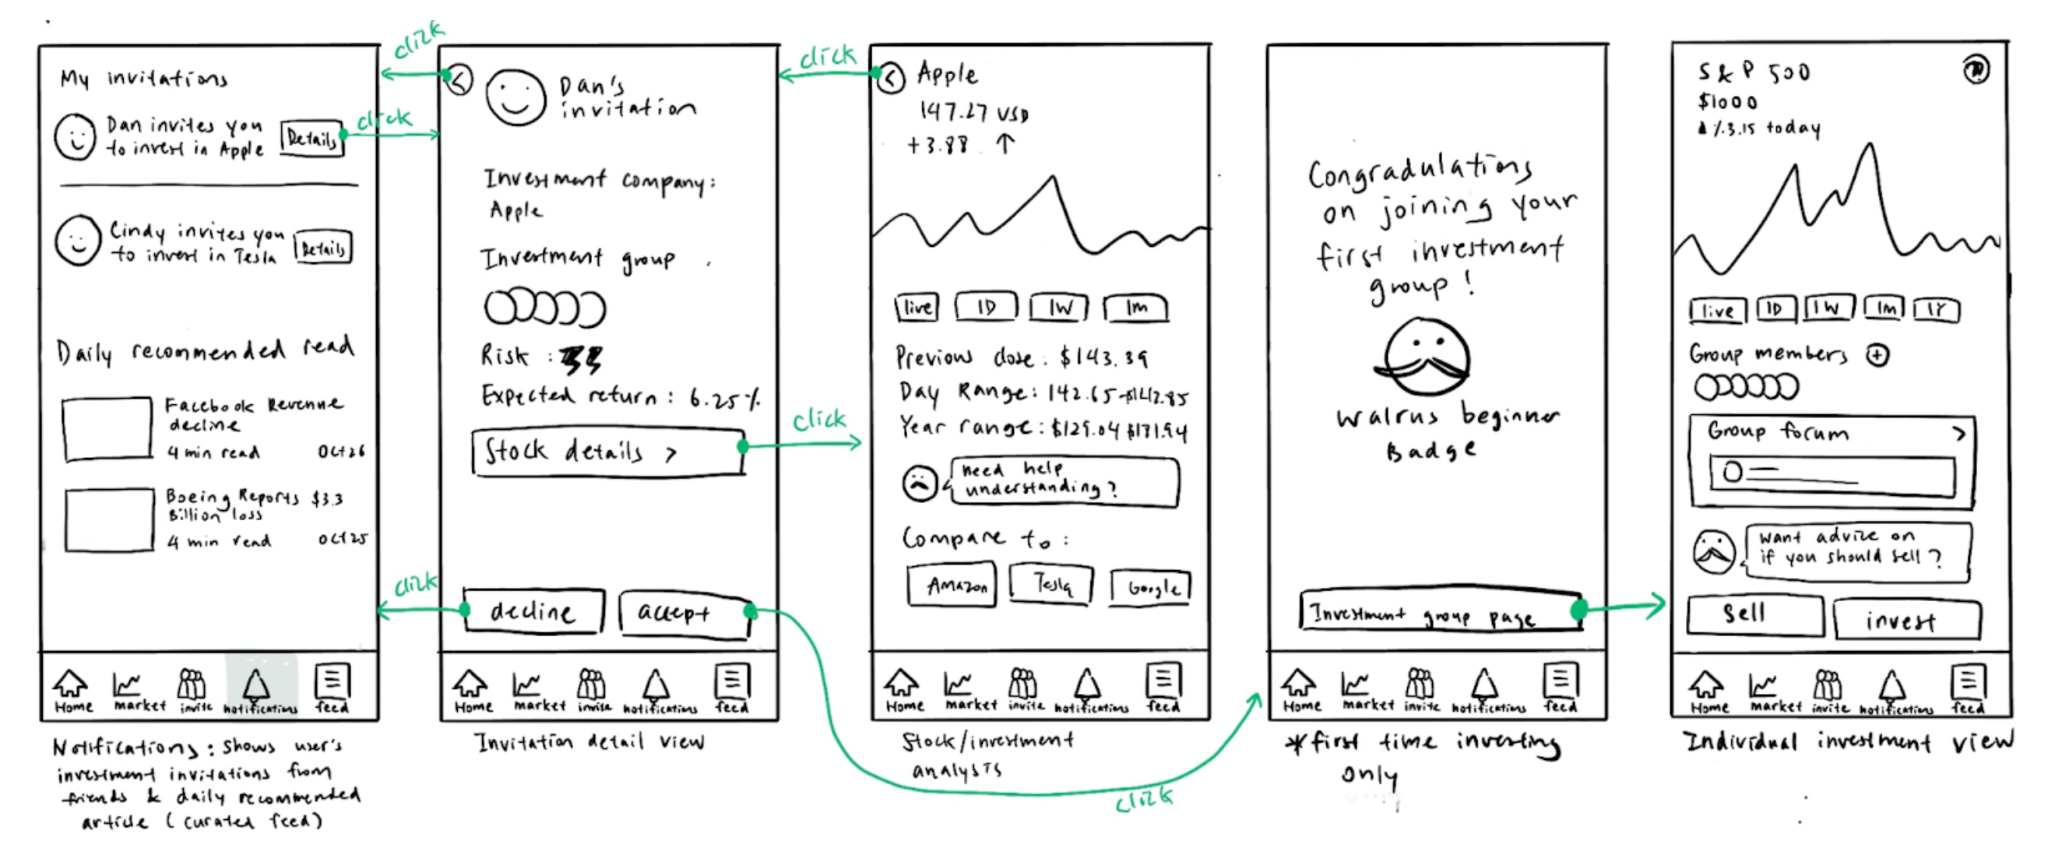 My invitations
Dan invites you
to invest in Apple
Details
Cindy invites you
to invest in Tesla
Details
Daily recommended read
Facebook Revenue
decline
4 min read
Oct 26
Boeing Reports $3.3
Billion loss
4 min read
Oct 25
Home
market
invite
notifications
feed
Notifications: shows user's
investment invitations from
friends & daily recommended
article (curated feed)
click
click
click
<
Dan's
invitation
Investment company:
Apple
Investment group
Risk :
Expected return : 6.25%
Stock details >
decline
accept
Home
market
invite
notifications
feed
Invitation detail view
click
click
click
<
Apple
147.27 USD
+3.88 ↑
live
1D
1W
1m
Previous close: $143.39
Day Range: 142.65-
Year range: $129.04
need help
understanding?
Compare to:
Amazon
Tesla
Google
Home
market
invite
notifications
feed
Stock/investment
analysts
Congradulations
on joining your
first investment
group!
Walrus beginner
Badge
Investment group page
Home
market
invite
notifications
feed
*first time investing
only
S & P 500
$1000
▲%3.15 today
live
1D
1W
1m
1Y
Group members +
Group forum >
Want advize on
if you should sell?
Sell
invest
Home
market
invite
notifications
feed
Individual investment view